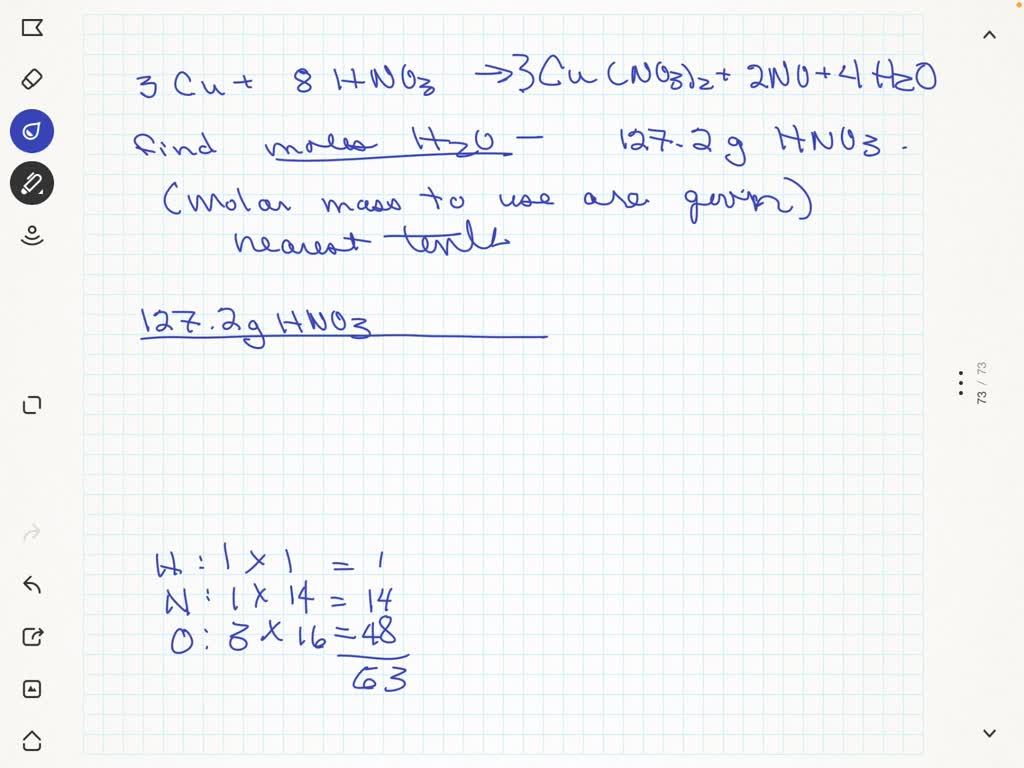 3 Cu + 8 HNO3 → 3Cu(NO3)2 + 2NO + 4H2O
find moles H2O - 127.2g HNO3.
(molar mass to use are given)
nearest tenth
127.2g HNO3
73 / 73
H : 1 × 1 = 1
N : 1 × 14 = 14
O : 3 × 16 = 48
63